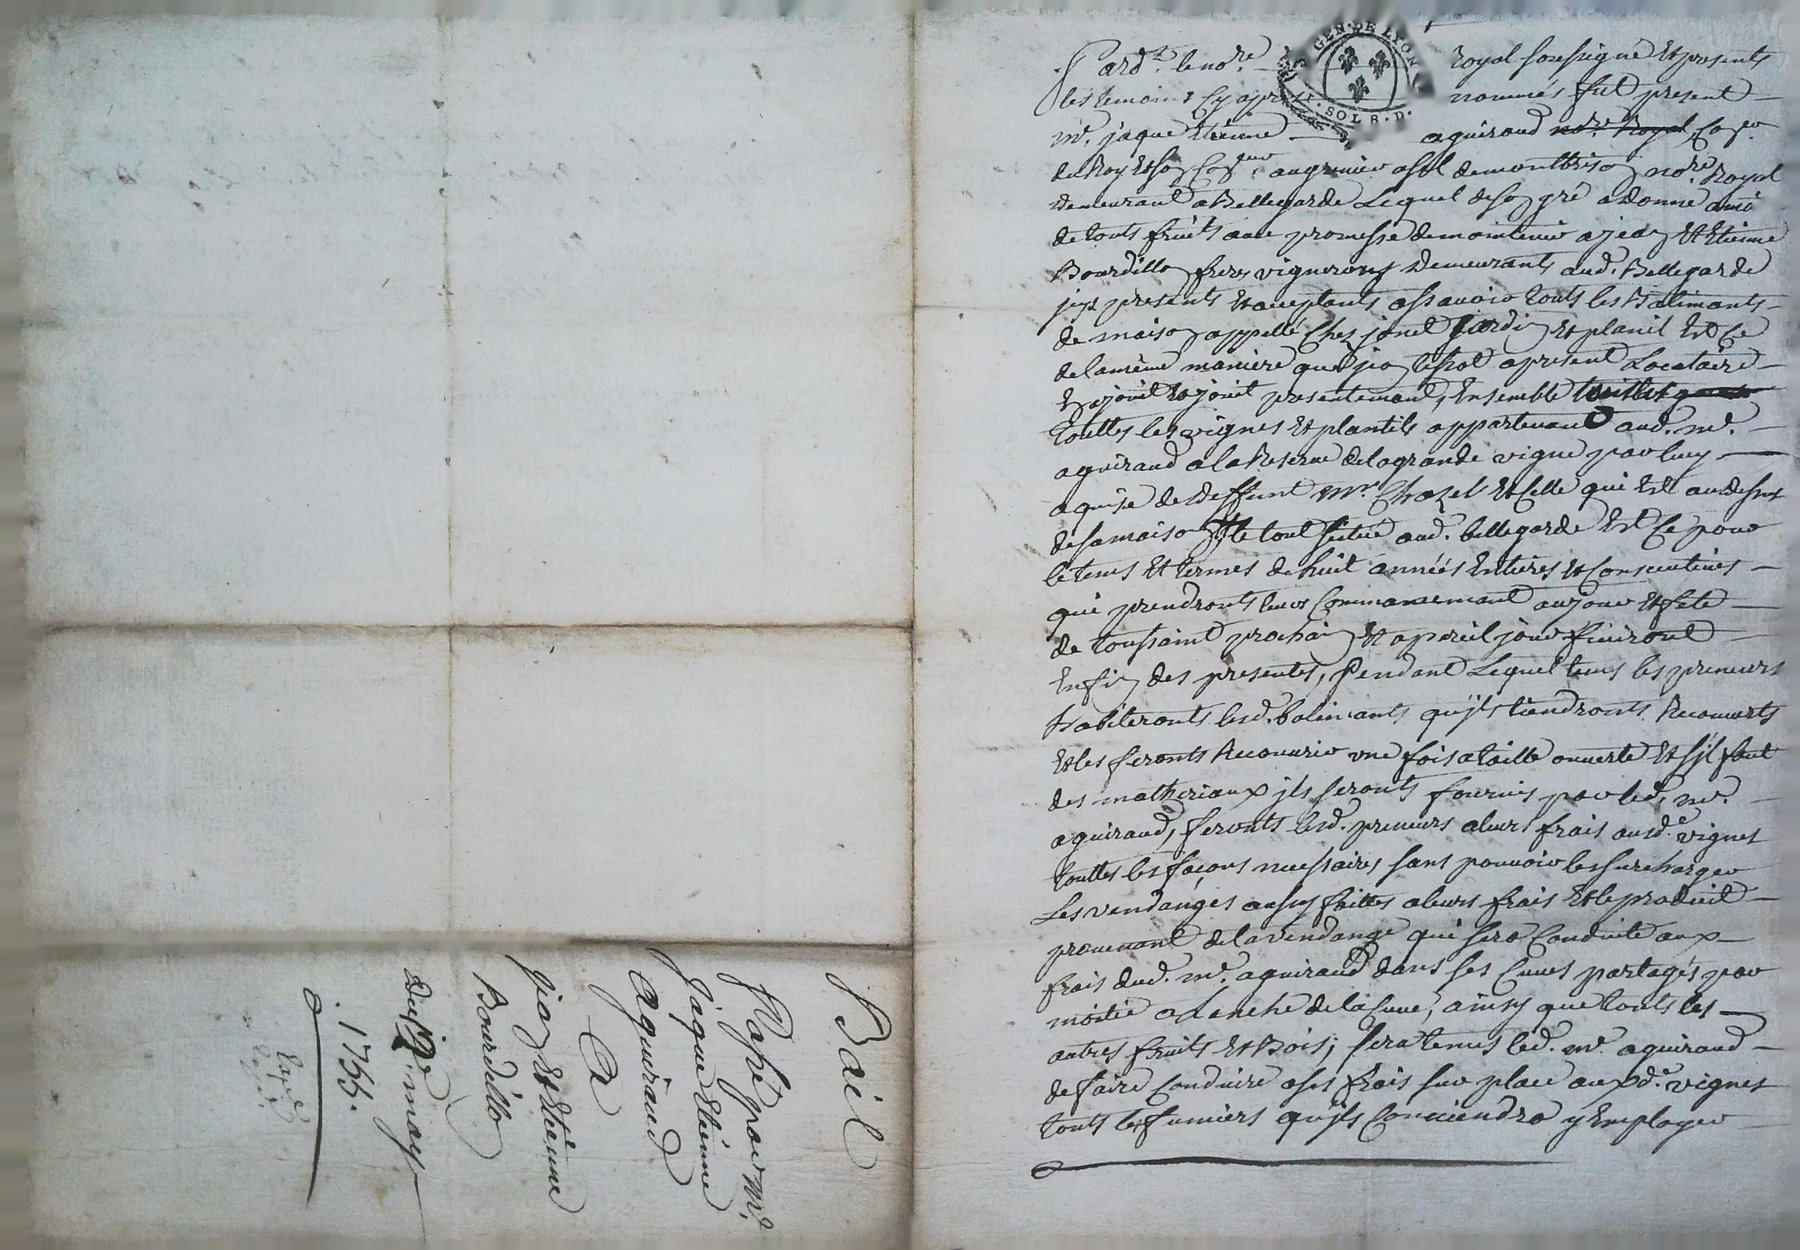 Bail
Passé par Mr.
Jaque Etienne
Aguiraud
A
Jean Et Etienne
Bourdillon
Du 19e. may
1755.
GEN. DE LYON
SOL 8. D.
Pard.t le no.re Royal soussigné Et presents
les temoins Cy apres nommés fut present
mr. jaque Etienne aguiraud no.re Royal, Con.er
du Roy Et son au grenier a sel de montbrison no.re Royal
demeurant a Bellegarde Lequel de son gré a donné a mi
de touts fruits avec promesse de maintenir a jean Et Etienne
Bourdillon freres vignerons demeurants aud. Bellegarde
jcy presents Et acceptants assavoir touts les Batimants
de maison appellé Chez jonel jardin Et planil Est Ce
de la méme maniere que a present Locataire
En a jouit Et jouit presentemant, Ensemble
touttes les vignes Et plantils appartenant aud. mr.
aguiraud a la Reserve de la grande vigne par luy
aquise de deffunt mr. Chazel Et Celle qui Est au dessus
de sa maison le tout scitué aud. bellegarde Est Ce pour
le tems Et termes de huit années Entieres Et Consecutives
qui prendronts leurs Commancemant au jour Et fete
de toussaint prochain Et a pareil jour finiront
Enfin des presentes, Pendant Lequel tems les preneurs
habiteronts lesd. batimants qu'jls tiendronts Recouverts
Et les feronts Recouvrir une fois a taille ouverte Et s'jl faut
des matheriaux jls seronts fournis par led. mr.
aguiraud, feronts lesd. preneurs a leurs frais ausd.e vignes
touttes les façons necessaires sans pouvoir les surcharger
Les vendanges aussy faittes a leurs frais Et le produit
provenant de la vendange qui sera Conduite aux
frais dud. mr. aguiraud dans ses Cuves partagés par
moitié a Lanche de la Cuve, ainsy que touts les
autres fruits Et Bois; sera tenus led. mr. aguiraud
de faire Conduire a ses frais sur place auxd.e vignes
touts les fumiers qu'jls Conviendra y Employer